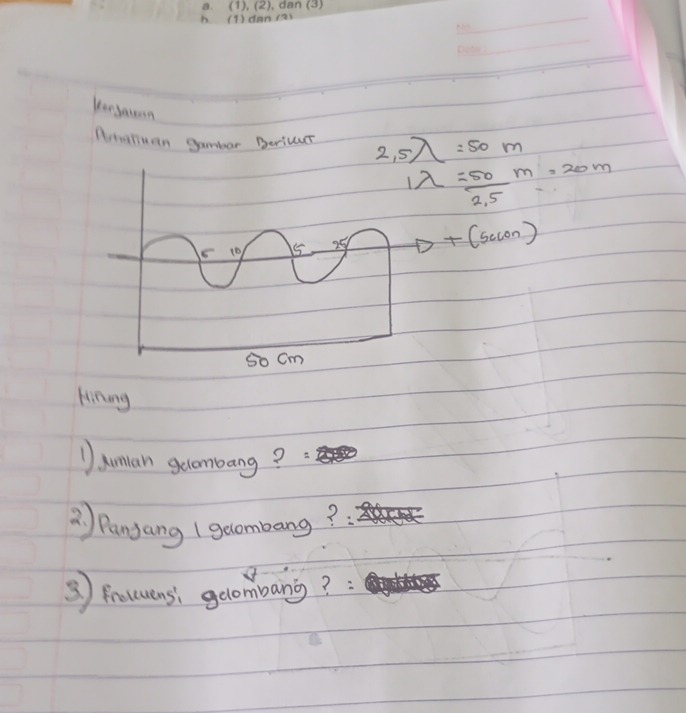 a. (1), (2), dan (3)
b. (1) dan (3)
Kerjakan
Perhatikan gambar Berikut
2,5λ = 50 m
1λ = 50 m = 20 m
2,5
5 10 5 25
t (secon)
50 Cm
Hitung
1) Jumlah gelombang ? =
2.) Panjang 1 gelombang ? :
3.) Frekuensi gelombang ? :